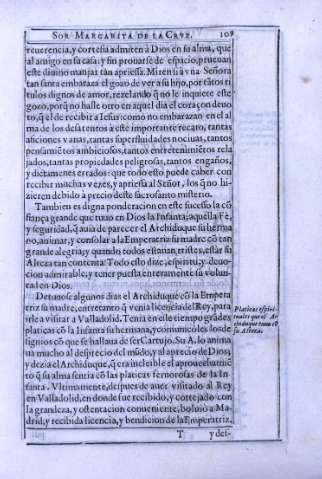 SOR MARGARITA DE LA CRVZ. 109
reuerencia, y cortesia admiten à Dios en su alma, que
al amigo en su casa: y sin prouarse de espacio, prueuan
este diuino manjar tan apriessa. Miren si à vna Señora
tan santa embaraza el gozo de ver a su hijo, por tãtos ti
tulos dignos de amor, rezelando q̃ no le inquiete esse
gozo, porq̃ no halle otro en aquel dia el coraçon deuo
to, q̃ el de recibir a Iesus: como no embarazan en el al
ma de los desatentos a este importante recato, tantas
aficiones vanas, tantas superfluidades nociuas, tantos
pensamiẽtos ambiciosos, tantos entretenimiẽtos rela
jados, tantas propiedades peligrosas, tantos engaños,
y dictamenes errados: que todo esto puede caber con
recibir muchas vezes, y apriessa al Señor, los q̃ no hi-
zieren debido à precio deste sacrosanto misterio.
Tambien es digna ponderacion en este sucesso la cõ
fiança grande que tuuo en Dios la Infanta; aquella Fè,
y seguridad, q̃ auia de parecer el Archiduque su herma
no, animar, y consolar a la Emperatriz su madre cõ tan
grande alegria; y quando todos estauan tristes, estàr su
Alteza tan contenta: Todo esto dize, espiritu, y deuo-
cion admirable, y tener puesta enteramente su volun-
tad en Dios.
Detuuose algunos dias el Archiduque cõ la Empera
triz su madre, entretanto q̃ venia licencia del Rey, para
irle a visitar a Valladolid. Tenia en este tiempo grãdes
platicas cõ la Infanta su hermana, y comunicoles los de
signios cõ que se hallaua de ser Cartujo. Su A. lo anima
ua mucho al desprecio del mũdo, y al aprecio de Dios;
y dezia el Archiduque, q̃ era increible el aprouechamiẽ
to q̃ su alma sentia cõ las platicas feruorosas de la In-
fanta. Vltimamente, despues de auer visitado al Rey
en Valladolid, en donde fue recibido, y cortejado con
la grandeza, y ostentacion conueniente, boluio a Ma-
drid, y recibida licencia, y bendicion de la Emperatriz,
T y des-
Platicas espiri-
tuales que el Ar
chiduque tenia cõ
su Alteza.